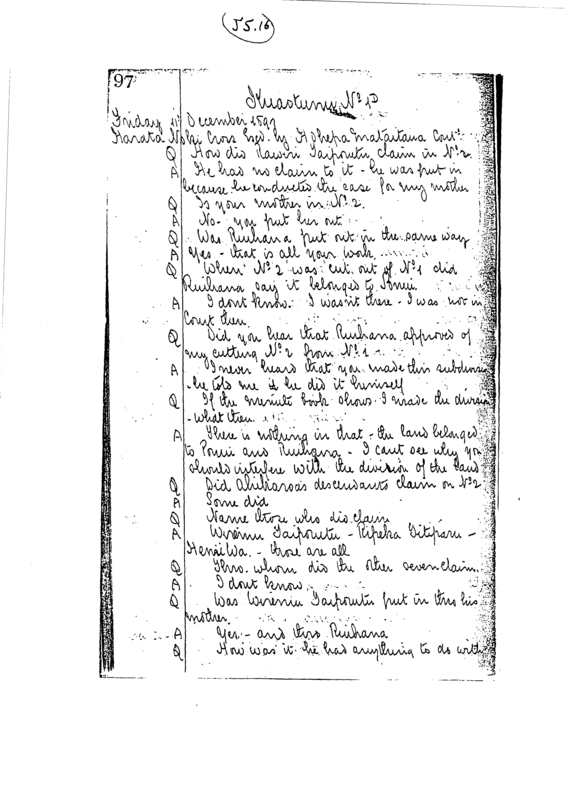 J5.16
97
Nº 1D
Friday 11 December 1897
Karata Cross by Hohepa Mataitaua
Q How did Rawiri Taiporutu claim in Nº 2.
A He had no claim to it - he was put in
because he conducted the case for my mother
Q Is your mother in Nº 2.
A No - you put her out
Q Was Ruihana put out in the same way
A Yes - that is all your work
Q When Nº 2 was cut out of Nº 1 did
Ruihana say it belonged to
A I dont know. I wasn't there - I was not in
Court then.
Q Did you hear that Ruihana approved of
my cutting Nº 2 from Nº 1 -
A I never heard that you made this
- he told me he did it himself
Q If the minute book shows I made the
- what then
A There is nothing in that - the land belonged
to and Ruihana - I cant see why you
should interfere with the division of the land
Q Did descendants claim on Nº 2
A Some did
Q Name those who did claim
A Wiremu Taiporutu - Ripeka -
- those are all
Q Thro. whom did the other seven claim
A I dont know
Q Was Wiremu Taiporutu put in thro his
mother
A Yes - and thro Ruihana
Q How was it he had anything to do with